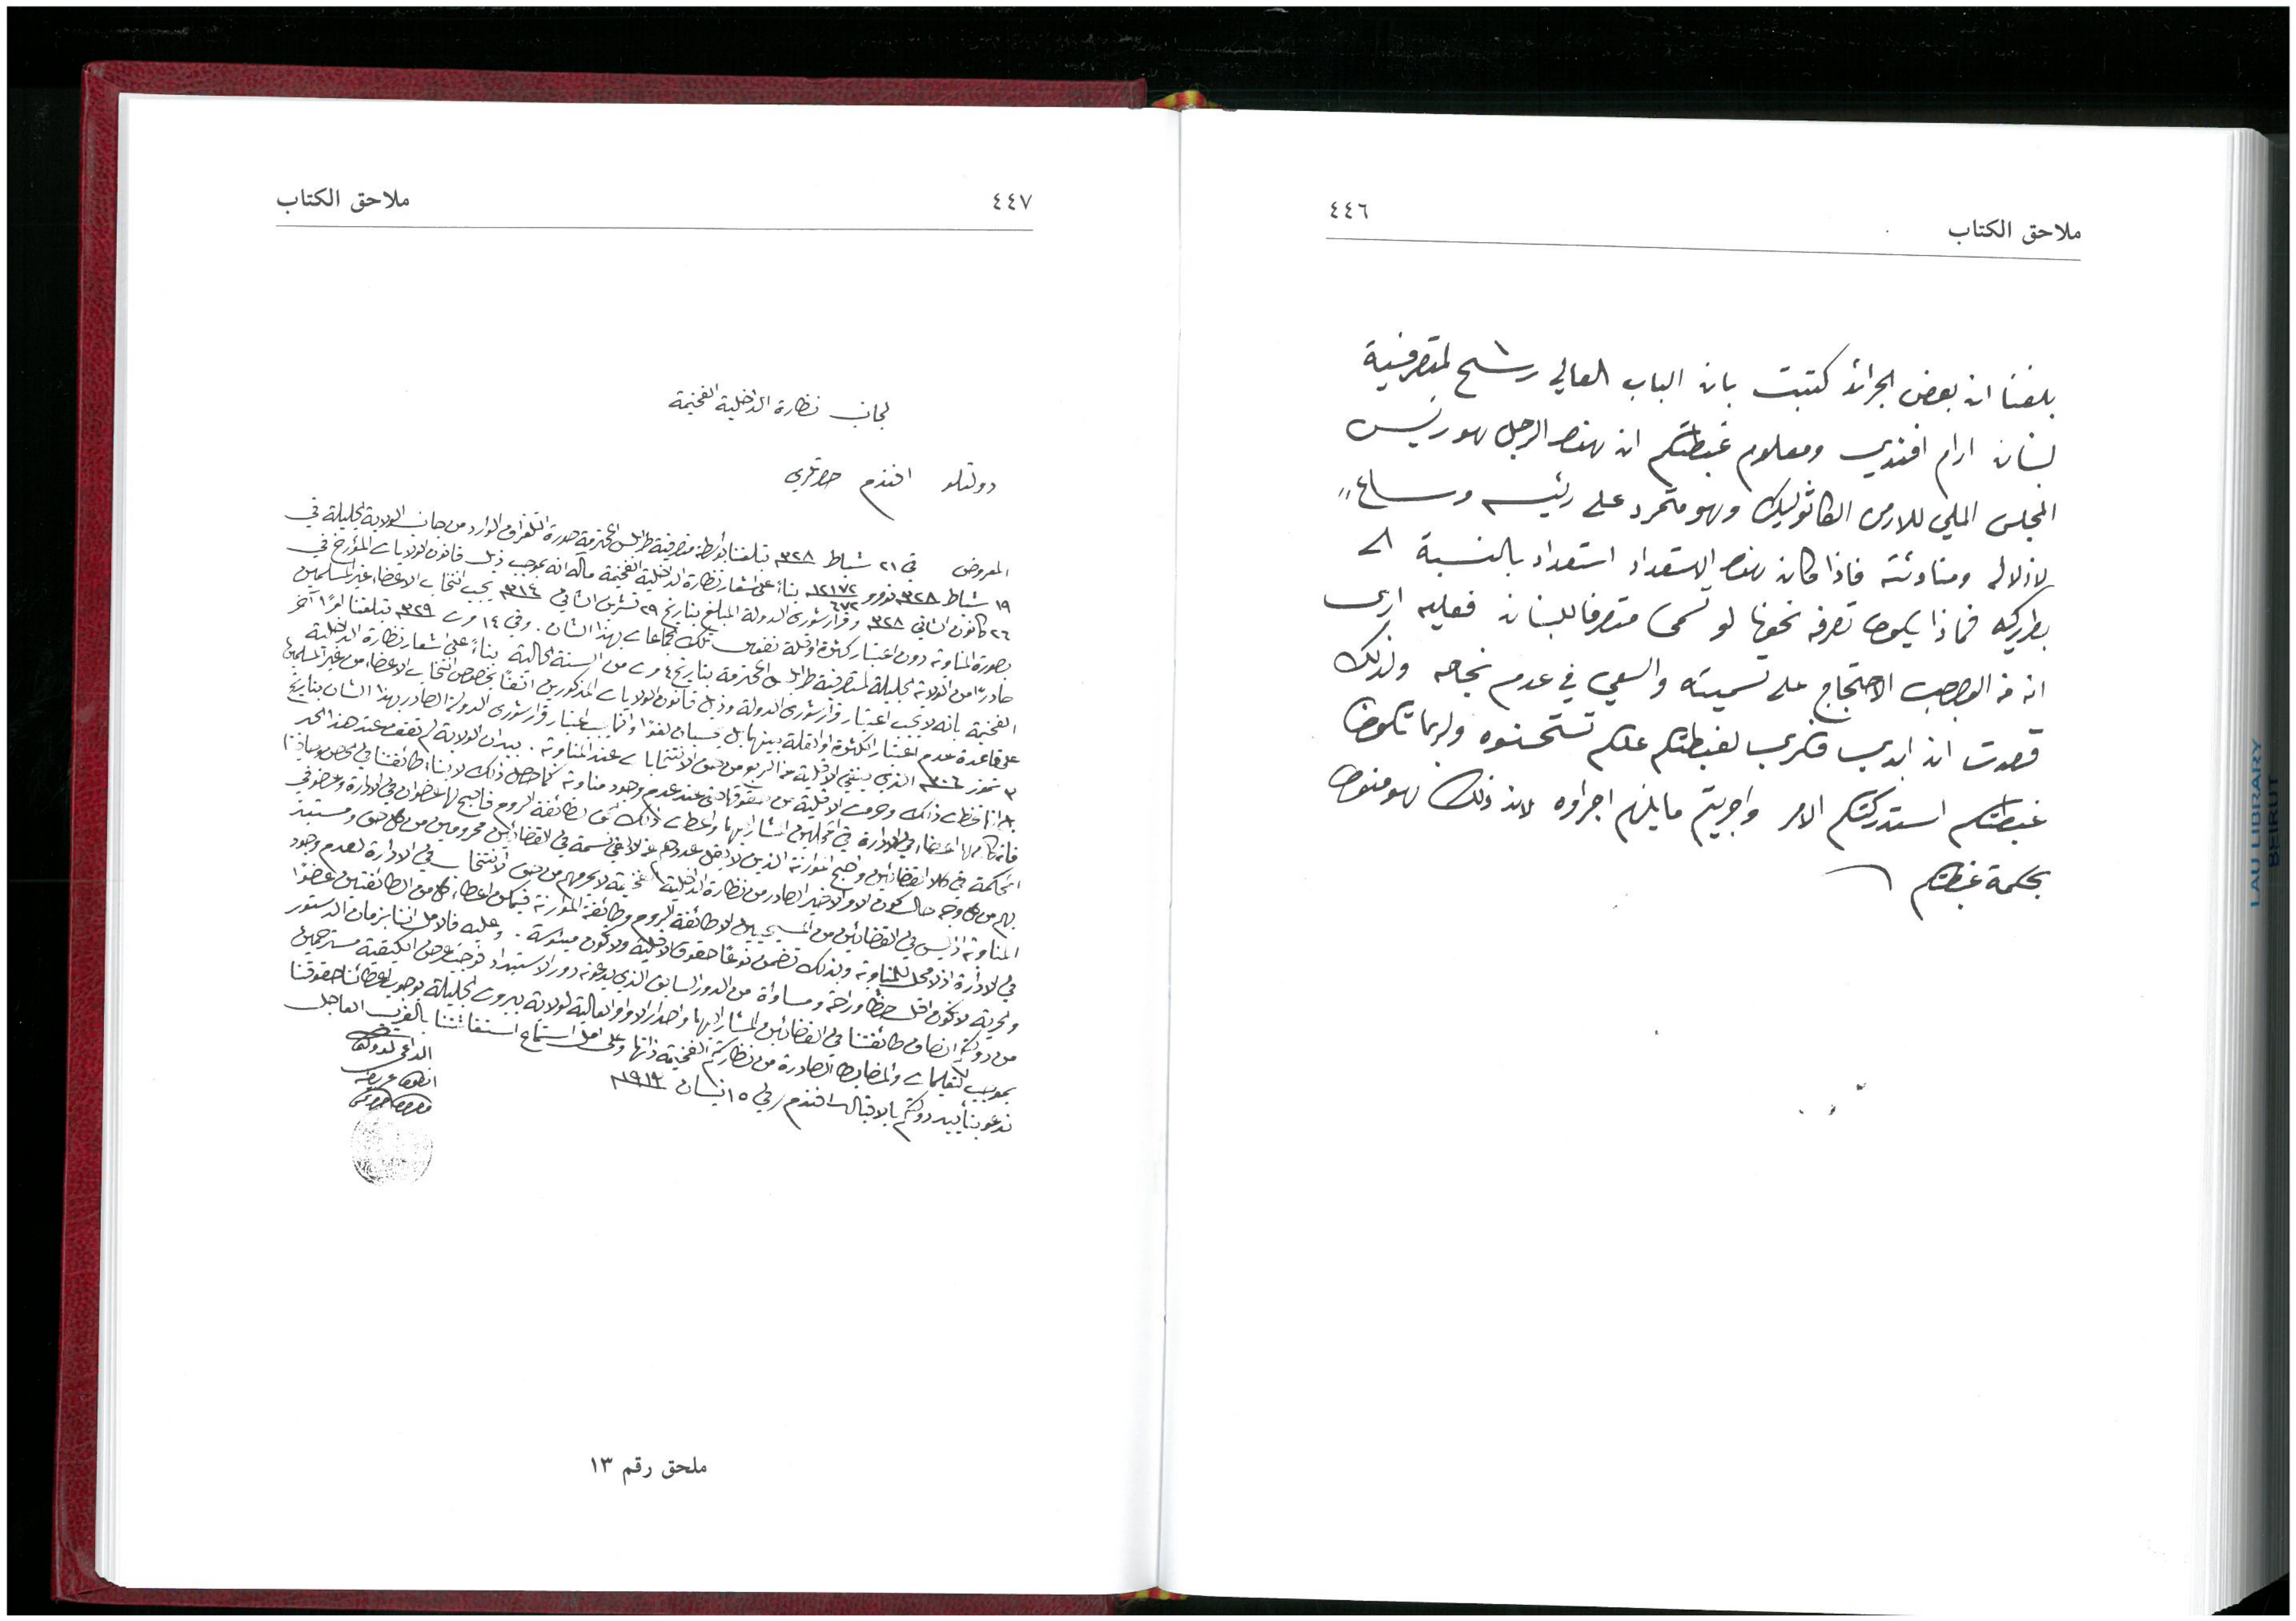 ملاحق الكتاب
٤٤٦
بلغنا ان بعض الجرائد كتبت بان الباب العالي رشح لمتصرفية
لبنان ارام افندي ومعلوم غبطتكم ان هذا الرجل هو رئيس
المجلس الملي للارمن الكاثوليك وهو متمرد على رئيسه وساع
لاذلاله ومناوئته فاذا كان هذا الاستعداد استعداد بالنسبة الى
بطريركه فماذا يكون تصرفه نحونا لو تسمى متصرفا للبنان فعليه ارى
انه من الواجب الاحتجاج على تسميته والسعي في عدم نجاحه ولذلك
قصدت ان ابدي فكري لغبطتكم علكم تستحسنوه ولربما تكون
غبطتكم استدركتم الامر واجريتم ما يلزم اجراوه لان ذلك هو منوط
بحكمة غبطتكم
٤٤٧
ملاحق الكتاب
لجانب نظارة الداخلية الفخيمة
دولتلو افندم حضرتلري
المعروض في ٢١ شباط ٣٢٨ تبلغنا بواسطة متصرفية طرابلس المحترمة صورة التلغراف الوارد من جانب الولاية الجليلة في
١٩ شباط ٣٢٨ بناءً على اشعار نظارة الداخلية الفخيمة مآله انه بموجب ذيل قانون الولايات المؤرخ في
٢٦ كانون الثاني ٣٢٨ وقرار شورى الدولة المبلغ بتاريخ ٢٩ تشرين الثاني ٣١٤ يجب انتخاب الاعضاء غير المسلمين
بصورة المناوبة دون اعتبار كثرة او قلة نفوس تلك الجماعات بهذا الشان. وفي ١٤ مارت ٣٢٩ تبلغنا امرًا آخر
صادرًا من الولاية الجليلة لمتصرفية طرابلس المحترمة بتاريخ ٤ مارت من السنة الحالية بناءً على اشعار نظارة الداخلية
الفخيمة بانه لا يجب اعتبار قرار شورى الدولة وذيل قانون الولايات المذكورين بخصوص انتخاب الاعضاء من غير المسلمين
على قاعدة عدم اعتبار الكثرة او القلة بينها بل اعتبار قرار شورى الدولة الصادر بهذا الشان بتاريخ
٣ تموز ٣٠٦ الذي الاقلية عن الربع من حق الانتخابات عند المناوبة. بيد ان الولاية لم تقف عند هذا الحد
ذلك وحرمت الاقلية من حقوقها عند عدم وجود مناوبة كما حصل ذلك لابناء طائفتنا في
اعضاء في الادارة في المشار اليهما واعطت ذلك لطائفة الروم فاصبح لها عضوان في الادارة وعضو في
المحكمة في كلا القضائين واصبح الموارنة الذين لا يقل عددهم عن نسمة في القضائين محرومين من كل حق
من كل وجه حال كون الامر الاخير الصادر من نظارة الداخلية الفخيمة لا يحرمهم من حق الانتخاب في الادارة لعدم وجود
المناوبة اذ ليس في القضائين من المسيحيين الا طائفة الروم وطائفة الموارنة فيمكن اعطاء كل من الطائفتين عضوًا
في الادارة اذ لا محل للمناوبة وبذلك تضمن نوعًا حقوق الاقلية ولا تكون . وعليه فالامل اننا بزمان الدستور
والحرية لا نكون اقل حظًا وراحة ومساواة من الدور السابق الذي يدعونه دور الاستبداد الكيفية مسترحمين
من دولتكم انصاف طائفتنا في القضائين المشار اليهما واصدار الاوامر العالية لولاية بيروت الجليلة بوجوب اعطائنا حقوقنا
بموجب التعليمات والمضابط الصادرة من نظارتكم الفخيمة ذاتها وعلى امل استماع استغاثتنا بالقرب العاجل
ندعو بتأييد دولتكم بالاقبال افندم في ١٥ نيسان
الداعي لدولتكم
انطون عريضه
ملحق رقم ١٣
LAU LIBRARY
BEIRUT